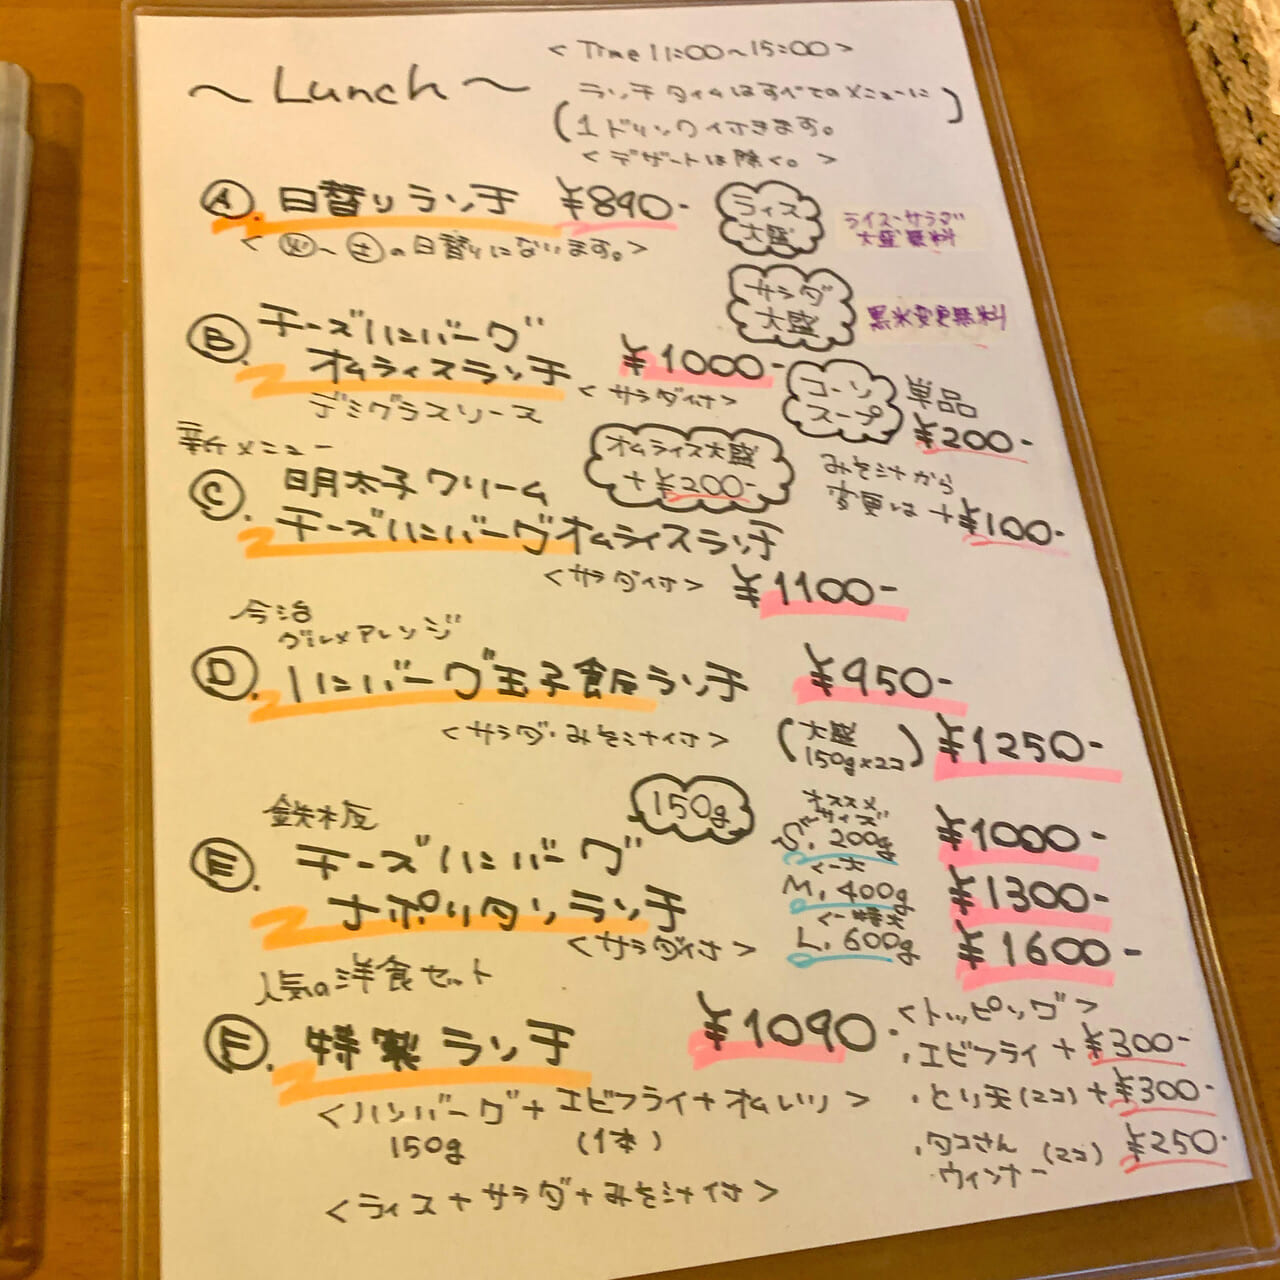 ~Lunch~
<Time 11:00~15:00>
(ランチタイムはすべてのメニューに
1ドリンク付きます。)
<デザートは除く。>
Ⓐ. 日替りランチ ¥890-
<㊋~㊏の日替りになります。>
ライス
大盛
ライス・サラダ
大盛無料
サラダ
大盛
黒米変更無料
Ⓑ. チーズハンバーグ
オムライスランチ ¥1000-
<サラダ付>
デミグラスソース
コーンスープ
単品
¥200-
みそ汁から
変更は +¥100-
新メニュー
オムライス大盛
+¥200-
Ⓒ. 明太子クリーム
チーズハンバーグオムライスランチ
<サラダ付> ¥1100-
今治
グルメアレンジ
Ⓓ. ハンバーグ玉子飯ランチ ¥950-
<サラダ・みそ汁付>
(大盛
150g×2コ) ¥1250-
鉄板
150g
Ⓔ. チーズハンバーグ
ナポリタンランチ
<サラダ付>
オススメ
サイズ
S. 200g ¥1000-
<-大
M. 400g ¥1300-
<-特大
L. 600g ¥1600-
人気の洋食セット
Ⓕ. 特製ランチ ¥1090-
<ハンバーグ+エビフライ+オムレツ>
150g (1本)
<ライス+サラダ+みそ汁付>
<トッピング>
・エビフライ +¥300-
・とり天(2コ) +¥300-
・タコさん
ウィンナー(2コ) ¥250-